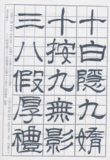 十白隱九
十按九無影
三八假厚禮